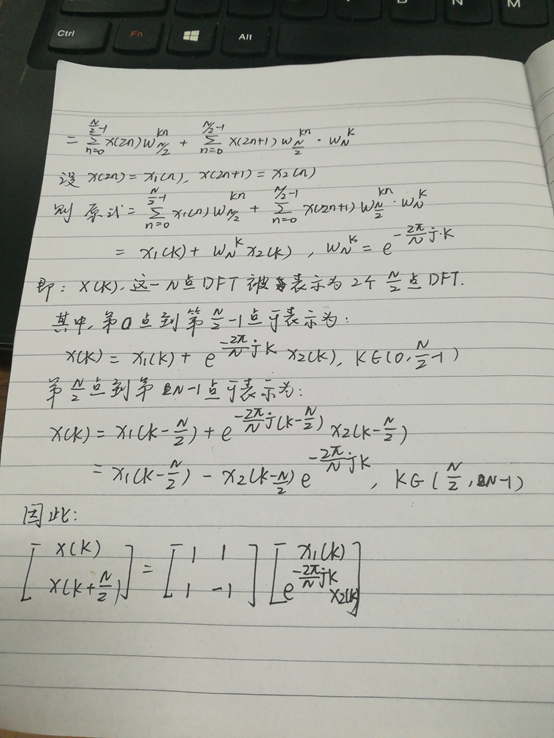 Ctrl Fn Alt N M
= \sum_{n=0}^{\frac{N}{2}-1} x(2n) W_{N/2}^{kn} + \sum_{n=0}^{N/2-1} x(2n+1) W_{\frac{N}{2}}^{kn} · W_N^k
设 x(2n) = x_1(n), x(2n+1) = x_2(n)
则 原式 = \sum_{n=0}^{\frac{N}{2}-1} x_1(n) W_{N/2}^{kn} + \sum_{n=0}^{N/2-1} x(2n+1) W_{\frac{N}{2}}^{kn} · W_N^k
= x_1(k) + W_N^k x_2(k), W_N^k = e^{-\frac{2π}{N}j·k}
即: X(k), 这一N点DFT被表示为2个\frac{N}{2}点DFT.
其中, 第0点到第\frac{N}{2}-1点可表示为:
X(k) = x_1(k) + e^{-\frac{2π}{N}jk} x_2(k), k∈(0, \frac{N}{2}-1)
第\frac{N}{2}点到第N-1点可表示为:
X(k) = x_1(k-\frac{N}{2}) + e^{-\frac{2π}{N}j(k-\frac{N}{2})} x_2(k-\frac{N}{2})
= x_1(k-\frac{N}{2}) - x_2(k-\frac{N}{2}) e^{-\frac{2π}{N}jk}, k∈(\frac{N}{2}, N-1)
因此:
[X(k); X(k+\frac{N}{2})] = [1 1; 1 -1] [x_1(k); e^{-\frac{2π}{N}jk} x_2(k)]